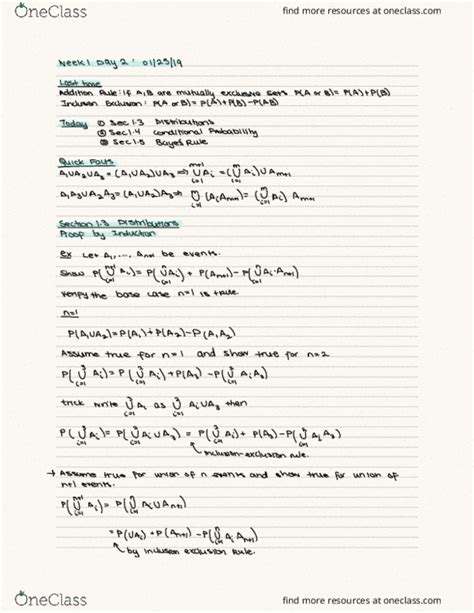 OneClass
find more resources at oneclass.com
Week 1 Day 2: 01/25/19
Last time
Addition Rule: If A,B are mutually exclusive sets P(A or B) = P(A)+P(B)
Inclusion Exclusion: P(A or B) = P(A)+P(B)-P(AB)
Today ① Sec 1.3 Distributions
② Sec 1.4 Conditional Probability
③ Sec 1.5 Bayes Rule
Quick Facts
Section 1.3 Distributions
Proof by Induction
ex Let A₁,..., Aₙ₊₁ be events.
Show P(⋃ᵢ₌₁ⁿ⁺¹ Aᵢ) = P(⋃ᵢ₌₁ⁿ Aᵢ) + P(Aₙ₊₁) - P(⋃ᵢ₌₁ⁿ Aᵢ·Aₙ₊₁)
Verify the base case n=1 is true.
n=1
P(A₁∪A₂) = P(A₁)+P(A₂)-P(A₁A₂)
Assume true for n=1 and show true for n=2
trick write as then
inclusion-exclusion rule.
→ Assume true for union of n events and show true for union of
n+1 events.
= P(∪Aᵢ) + P(Aₙ₊₁) - P(⋃ᵢ₌₁ⁿ Aᵢ Aₙ₊₁)
by inclusion exclusion rule.
OneClass
find more resources at oneclass.com